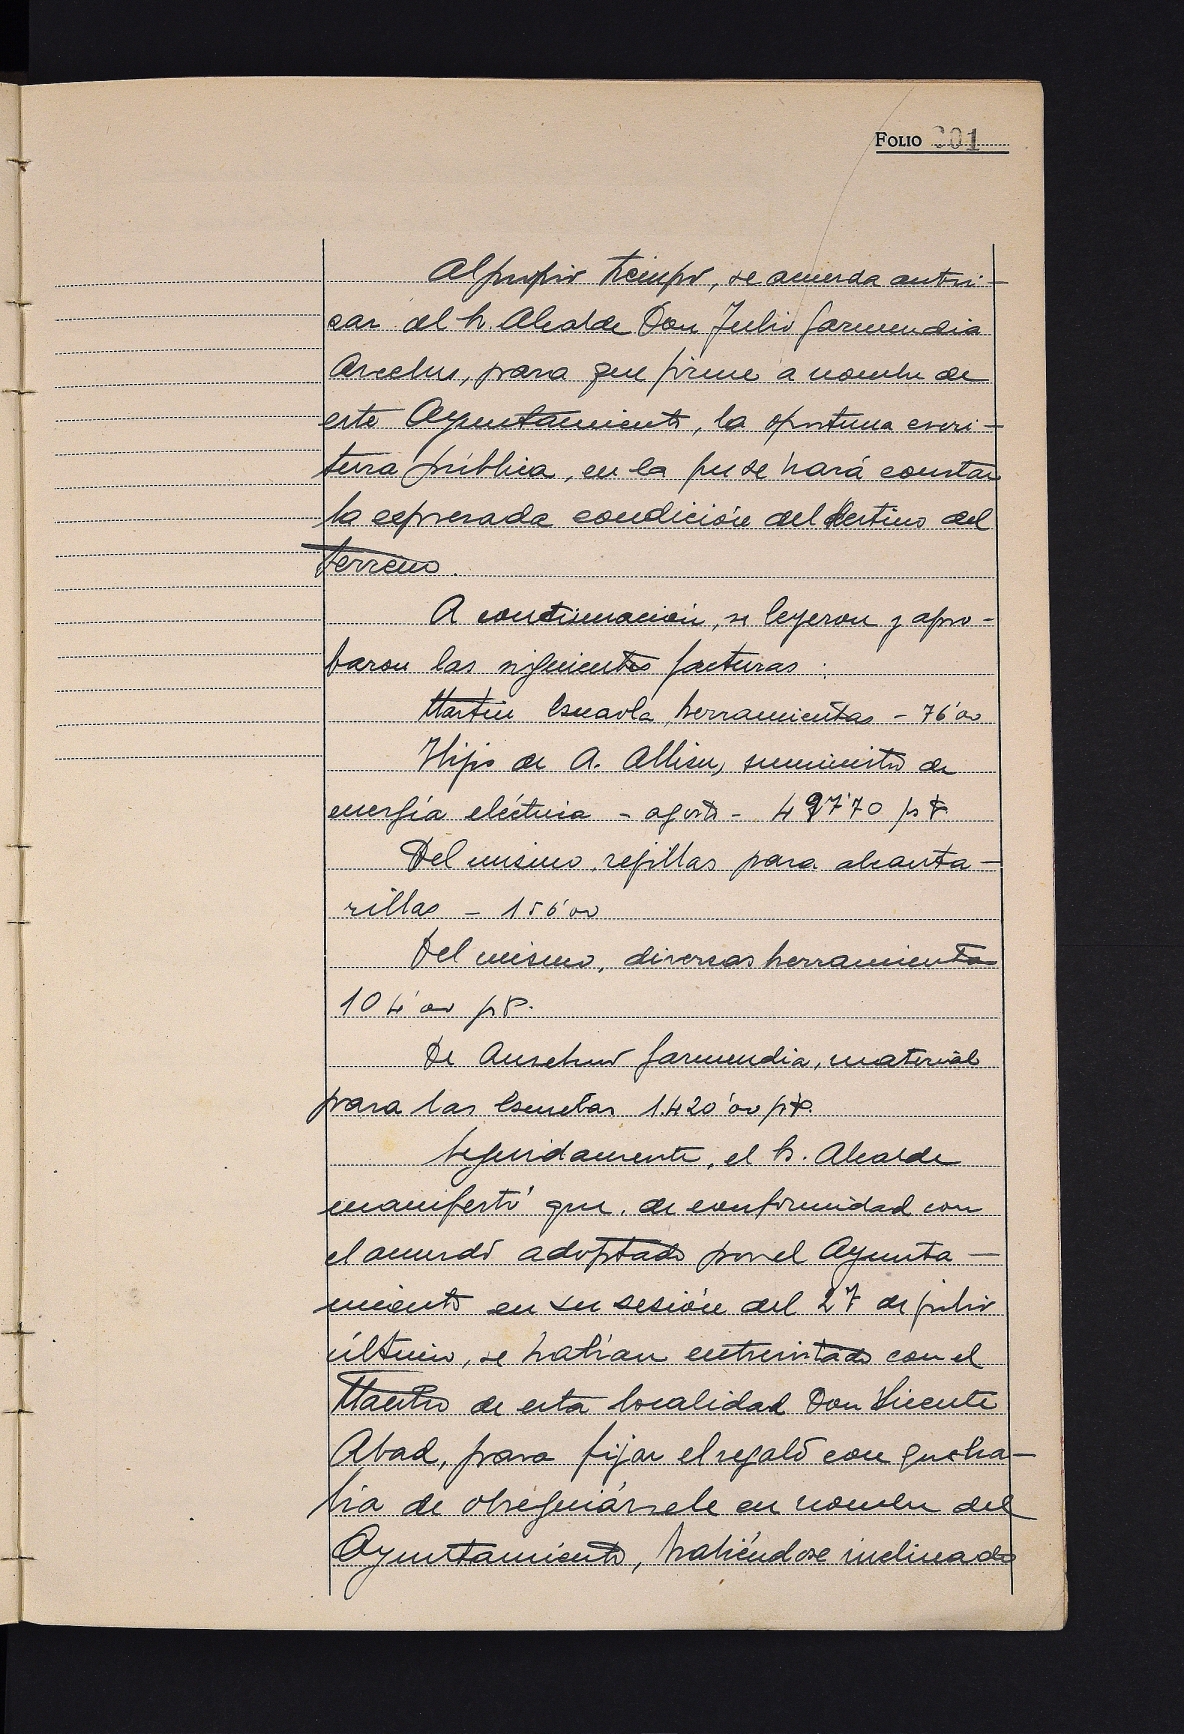 FOLIO 201
Al propio tiempo, se acuerda autori-
zar al Sr. Alcalde Don Julio Garmendia
Arcelus, para que firme a nombre de
este Ayuntamiento, la oportuna escri-
tura pública, en la que se hará constar
la expresada condición del destino del
terreno.
A continuación, se leyeron y apro-
baron las siguientes facturas:
Martin Esnaola, herramientas - 76'00
Hijo de A. Allisu, suministro de
energía eléctrica - agosto - 497'70 pts
Del mismo, rejillas para alcanta-
rillas - 156'00
Del mismo, diversas herramientas
104'00 pts.
De Anselmo Garmendia, material
para las Escuelas 1.420'00 pts.
Seguidamente, el Sr. Alcalde
manifestó que, de conformidad con
el acuerdo adoptado por el Ayunta-
miento en su sesión del 27 de julio
último, se habían entrevistado con el
Maestro de esta localidad Don Vicente
Abad, para fijar el regalo con que ha-
bía de obsequiársele en nombre del
Ayuntamiento, habiéndose inclinado